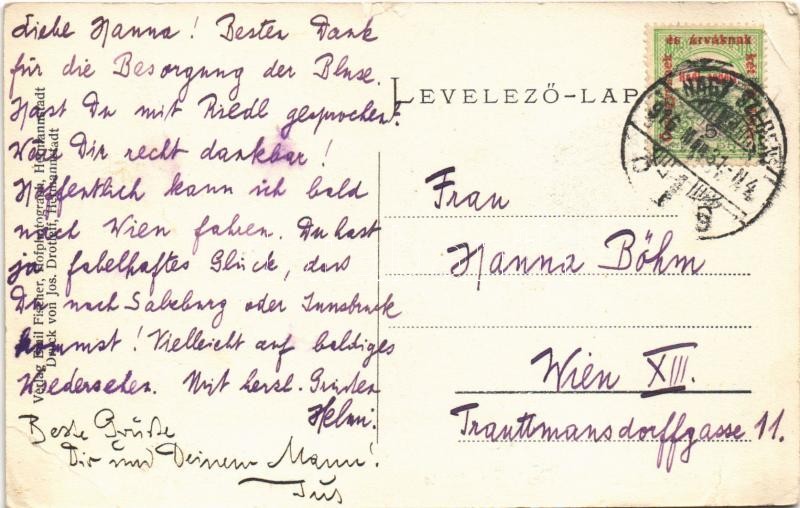 Liebe Hanna! Besten Dank
für die Besorgung der Bluse.
Hast Du mit Riedl gesprochen?
Wäre Dir recht dankbar!
Hoffentlich kann ich bald
nach Wien fahren. Du hast
ja fabelhaftes Glück, dass
Du nach Salzburg oder Innsbruck
kommst! Vielleicht auf baldiges
Wiedersehen. Mit herzl. Grüßen
Helmi.
Beste Grüße
Dir und Deinem Mann!
Verlag Emil Fischer, Hofphotograph, Hermannstadt
Druck von Jos. Drotleff, Hermannstadt
LEVELEZŐ-LAP
és árváknak
NAGY
Frau
Hanna Böhm
Wien XIII.
Trauttmansdorffgasse 11.